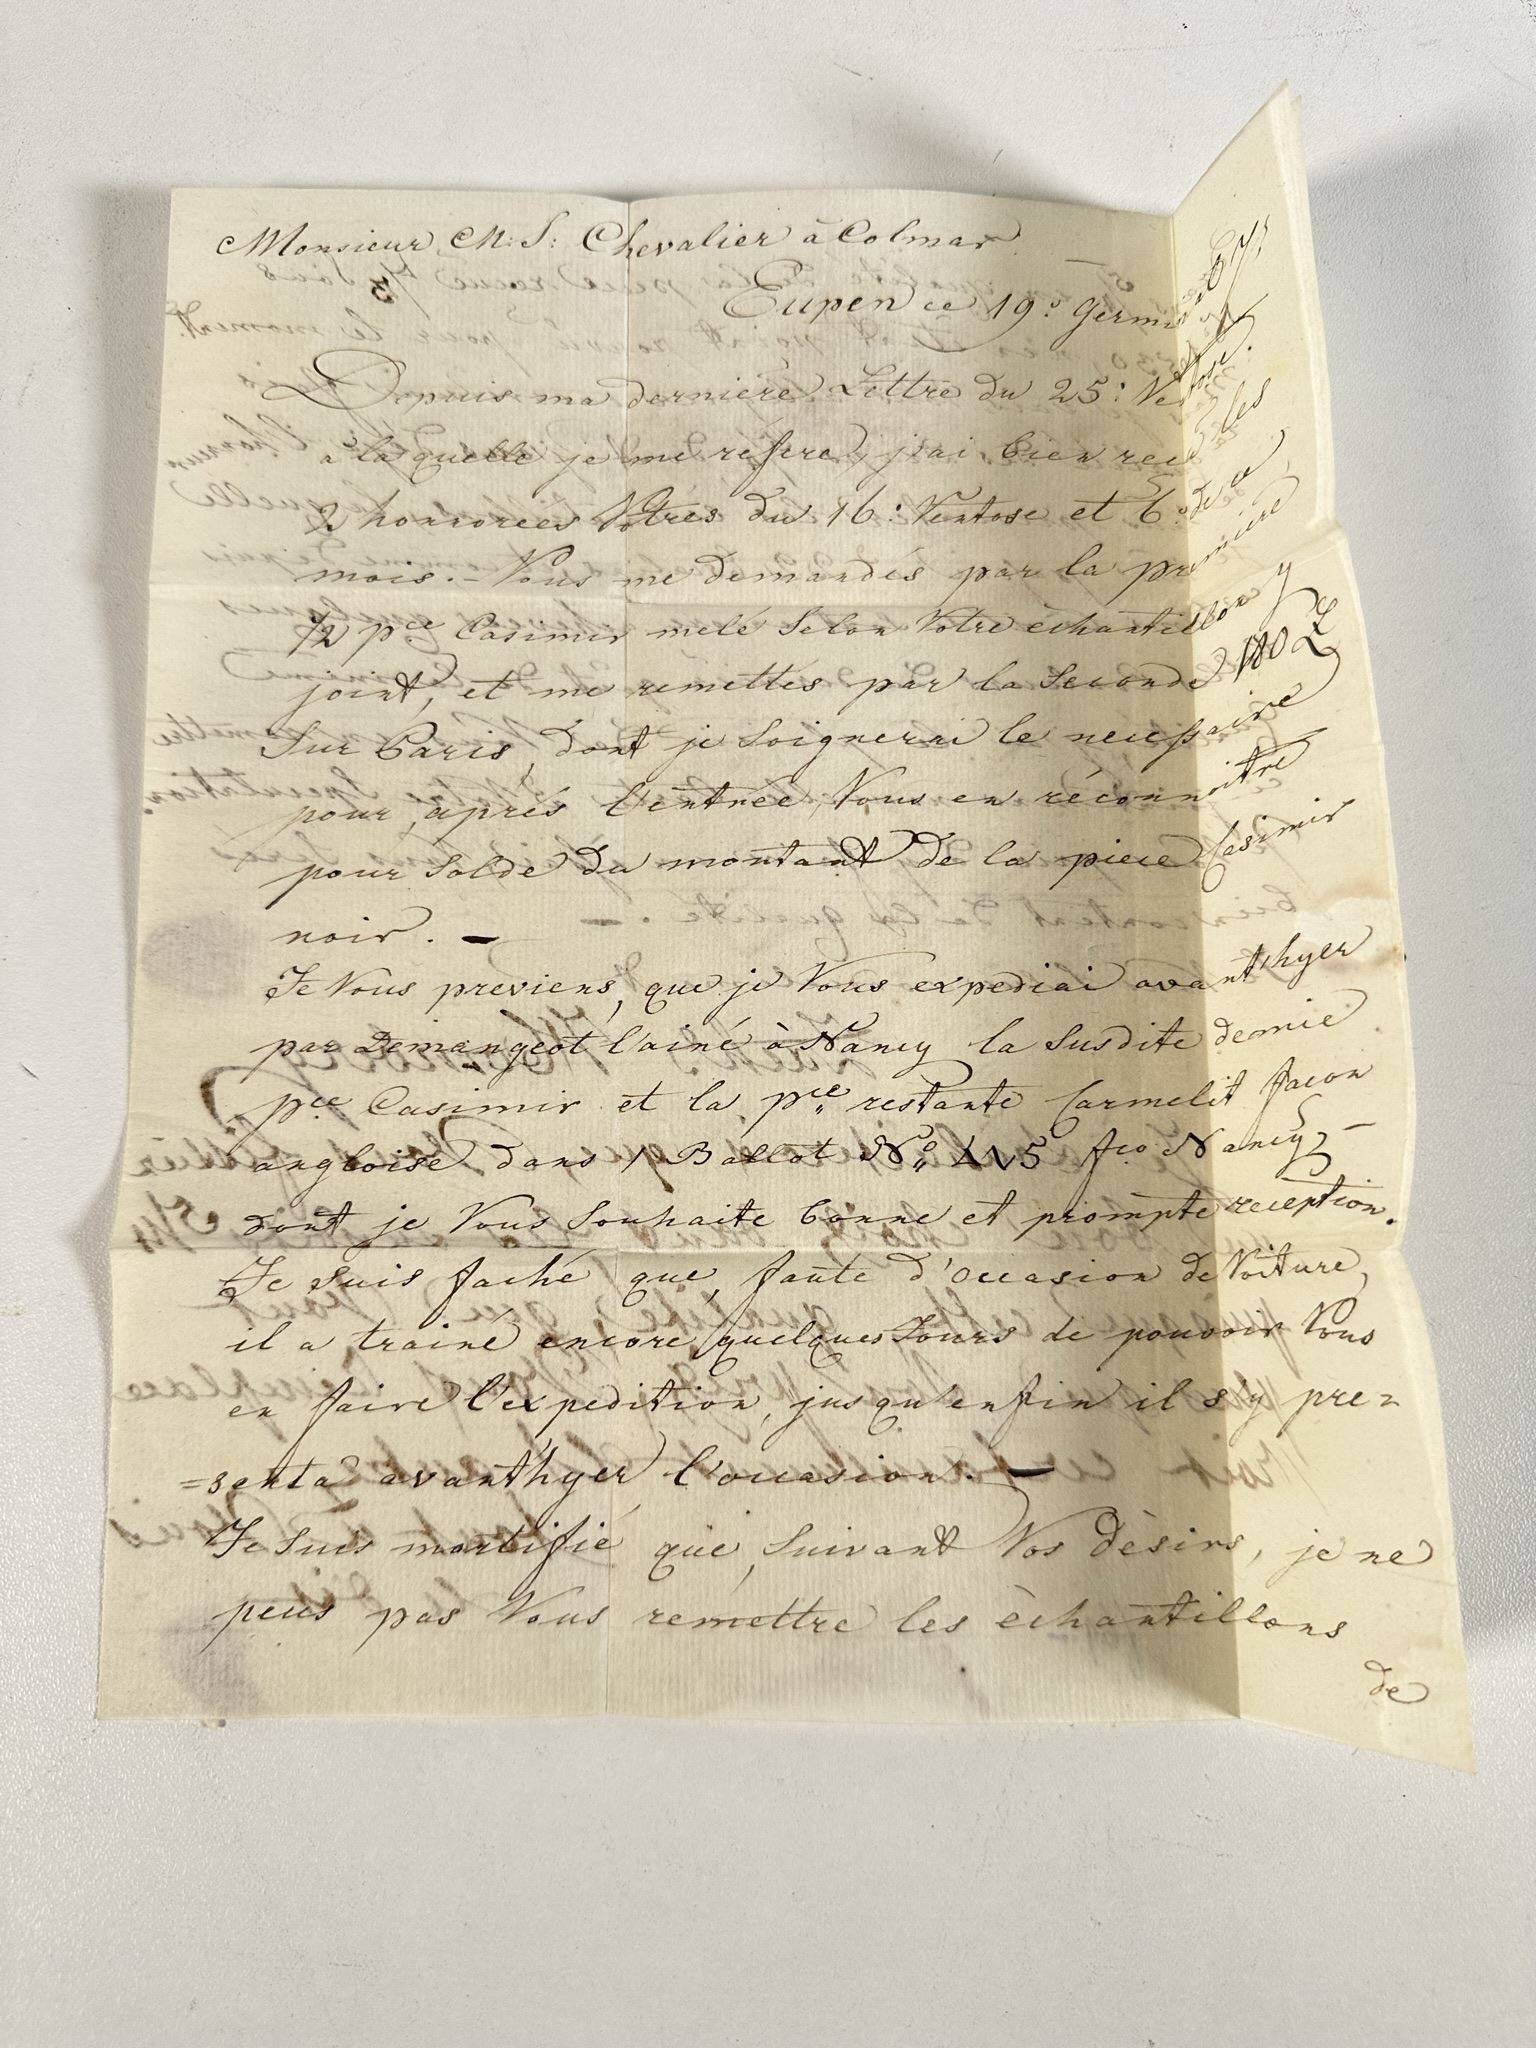 Monsieur M: S: Chevalier à Colmar
Eupen ce 19.º Germin:
Depuis ma derniére Lettre du 25: Ventose.
à laquelle je me réfere, j'ai bien recû les
2 honorées Votres du 16: Ventose et 6.º de ce
mois. – Vous me demandés par la première,
1/2 p.ce Casimir melé Selon Votre échantillon y
joint, et me remettés par la Seconde
Sur Paris, dont je Soignerai le necessaire
pour, après l'entrée, Vous en réconnoitre
pour Solde du montant de la piece Casimir
noir. –
Je Vous previens, que je Vous expediai avant'hyer
par Demangeot l'ainé à Nancy la Susdite demie
p.ce Casimir et la p.ce restante Carmelit facon
angloise dans 1 Ballot N.º fco. Nancy –
dont je Vous Souhaite bonne et prompte reception.
Je Suis faché que, faute d'occasion de Voiture,
il a trainé encore quelques Jours de pouvoir Vous
en faire l'expedition, jusqu'enfin il s'y pre=
=senta avant'hyer l'occasion. –
Je Suis mortifié que, Suivant Vos dèsirs, je ne
peus pas Vous remettre les èchantillons
de